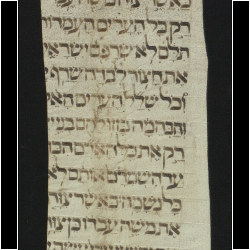 כאשר צוה משה
רק כל הערים העמדות
תלם לא שרפם ישראל
את חצור לבדה שרף
וכל שלל הערים הא
והבהמה בזזו להם בני
רק את כל האדם הכו
עד השמדם אותם לא
כל נשמה כאשר צוה
את משה עבדו כן צוה